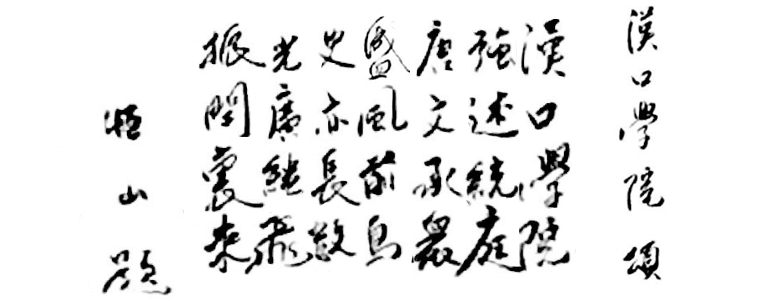 漢口學院頌
漢口學院
強述統庭
唐文承
盛風前鳥
史亦長
光廣繼飛
振裏來
恒山題